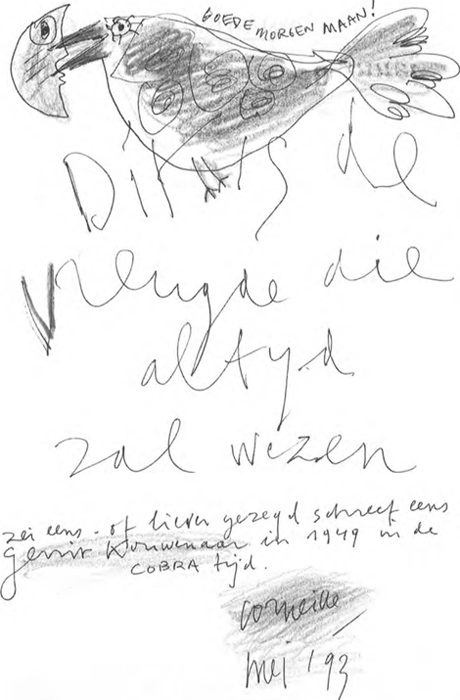 GOEDE MORGEN MAAN!
Dit is de
vreugde die
altyd
zal wezen
zei eens - of liever gezegd schreef eens
Gerrit Kouwenaar in 1949 in de
COBRA tijd.
Corneille
mei '93